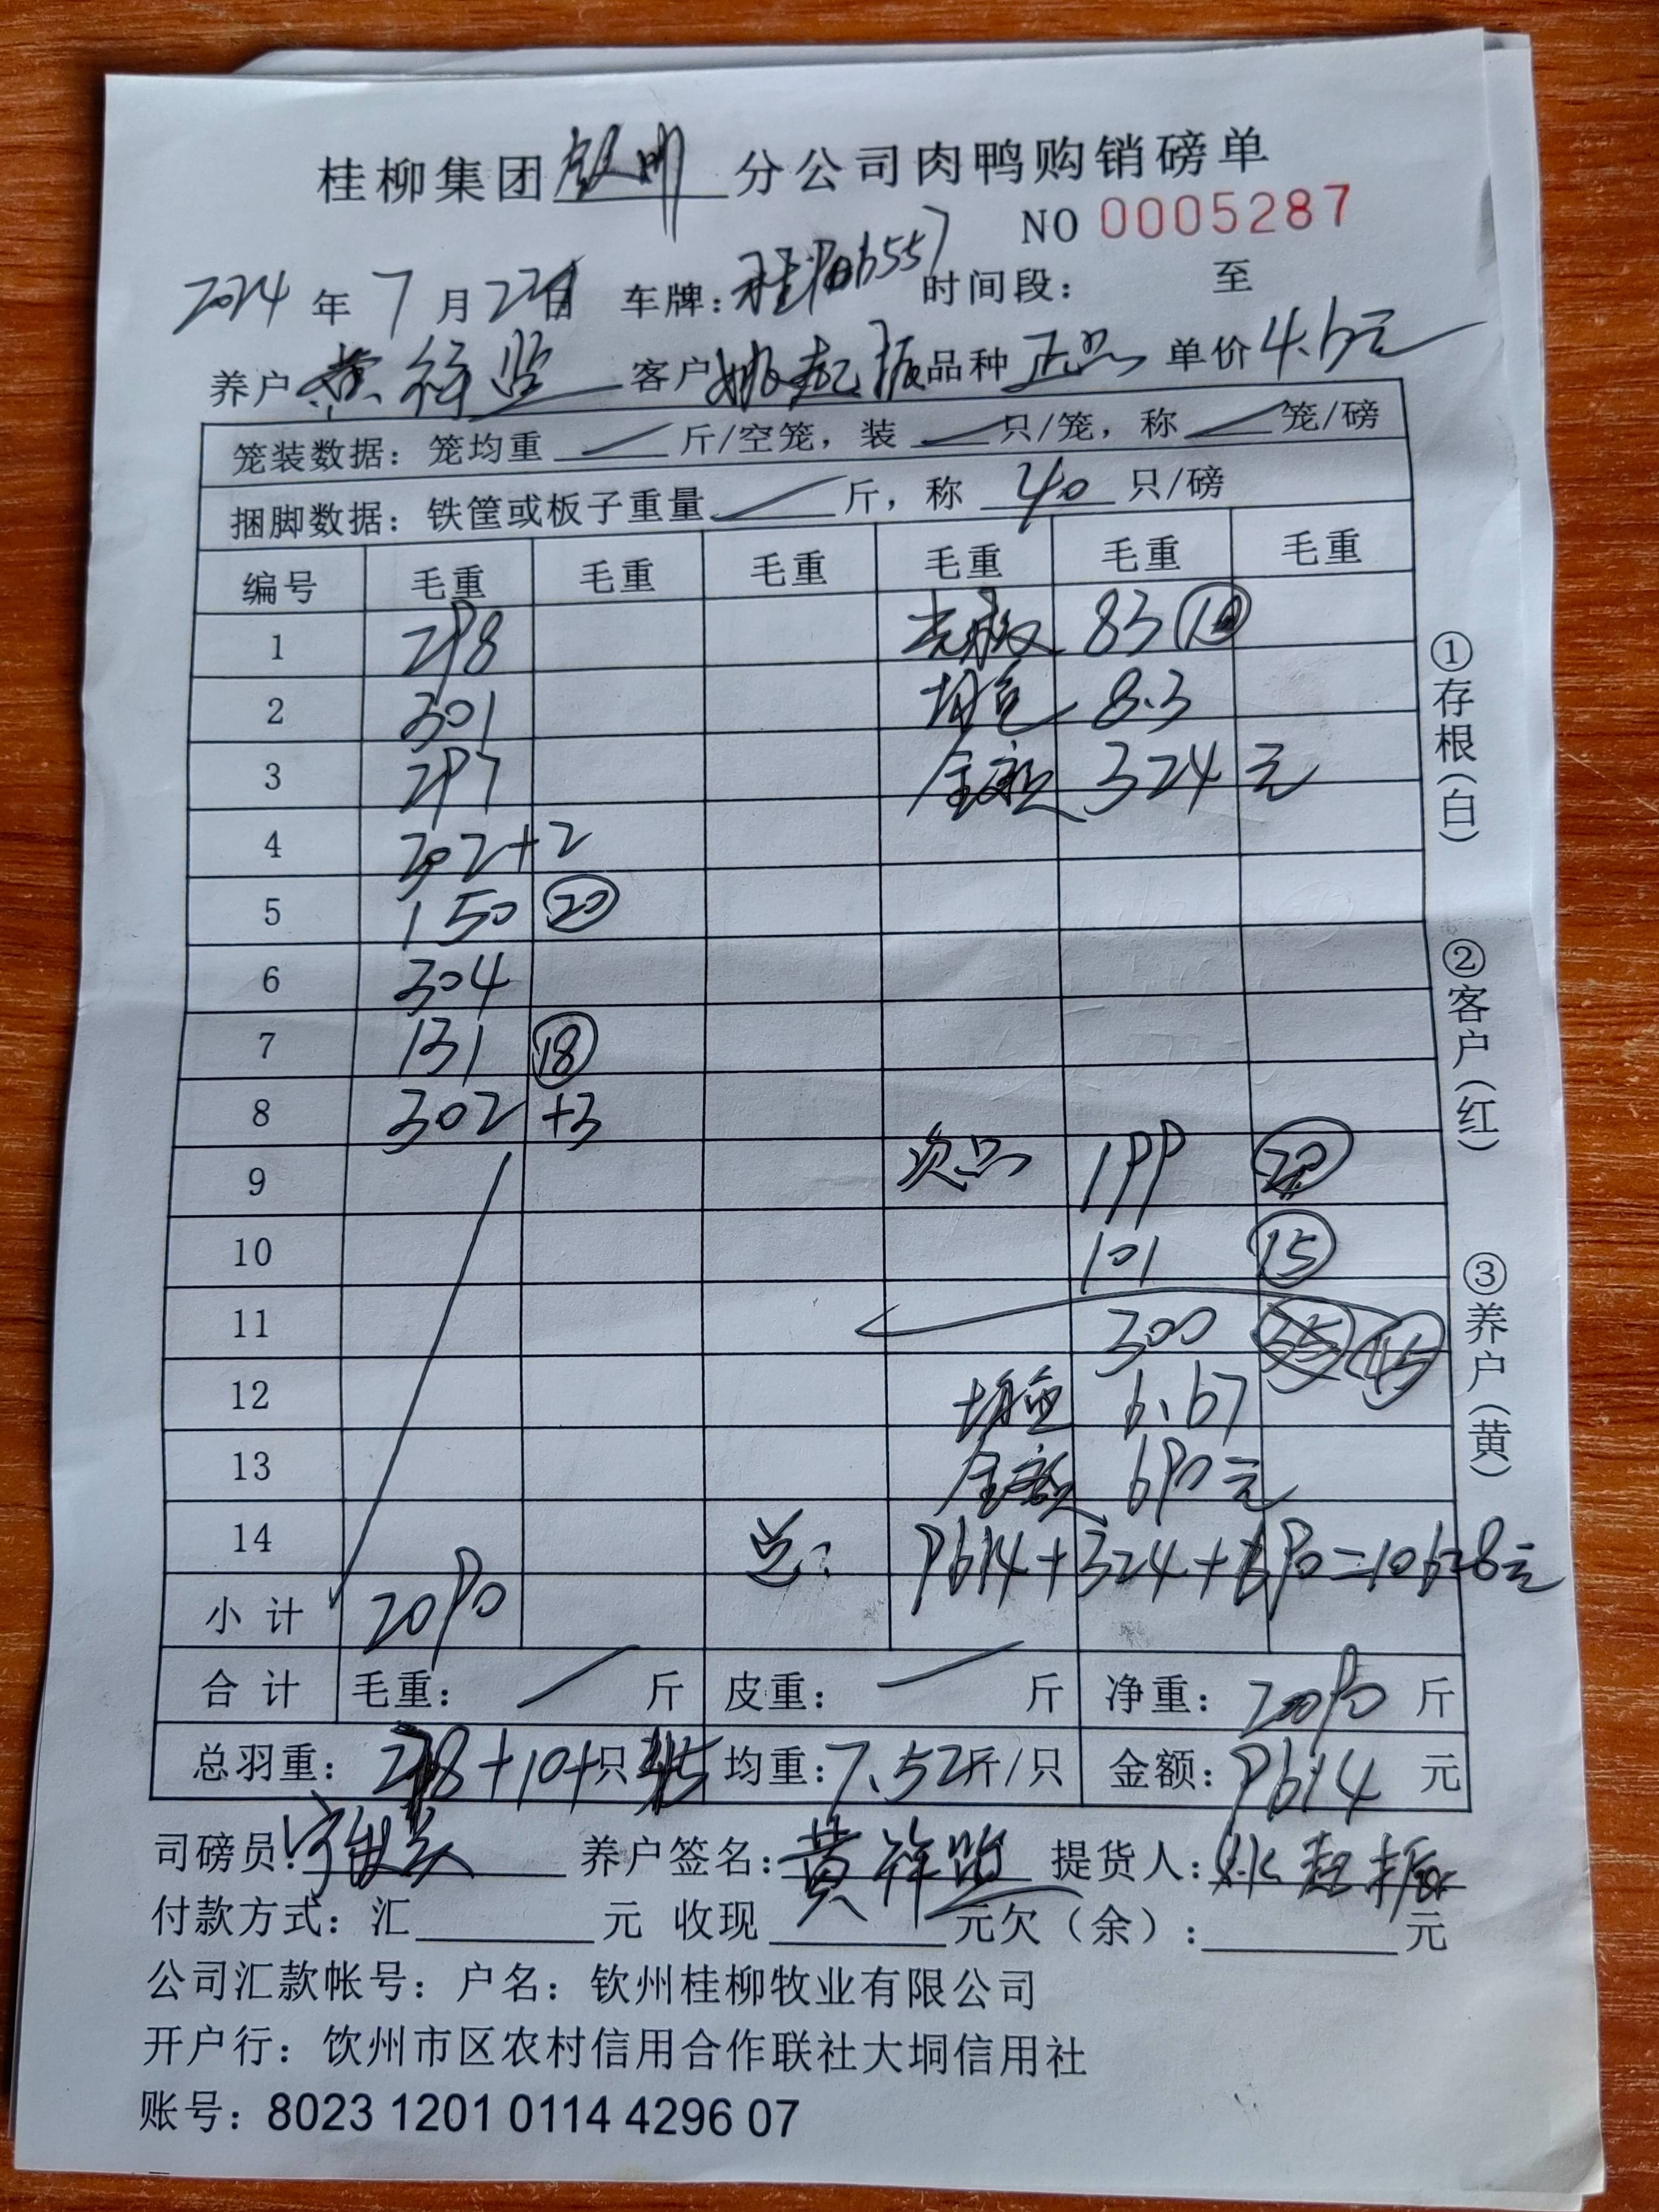 桂柳集团钦州分公司肉鸭购销磅单
NO 0005287
2024年7月22日 车牌:桂P06557 时间段: 至
养户 黄祥 客户 姚起振 品种 正品 单价 4.6元
笼装数据:笼均重 斤/空笼,装 只/笼,称 笼/磅
捆脚数据:铁筐或板子重量 斤,称 40 只/磅
编号 毛重 毛重 毛重 毛重 毛重 毛重
1 298 83 10
2 301 均重 8.3
3 297 金额 324元
4 302+2
5 150 20
6 304
7 131 18
8 302 +3
9 次品 199
10 101 15
11 300 35 45
12 均重 6.67
13 金额 690元
14 总: 9614+324+690=10628元
小计 2090
合计 毛重: 斤 皮重: 斤 净重: 2090 斤
总羽重: 278+10+只45 均重:7.52斤/只 金额:9614 元
司磅员: 养户签名:黄祥 提货人:姚起振
付款方式:汇 元 收现 元欠(余): 元
公司汇款帐号:户名:钦州桂柳牧业有限公司
开户行:饮州市区农村信用合作联社大垌信用社
账号:8023 1201 0114 4296 07
①存根(白)
②客户(红)
③养户(黄)